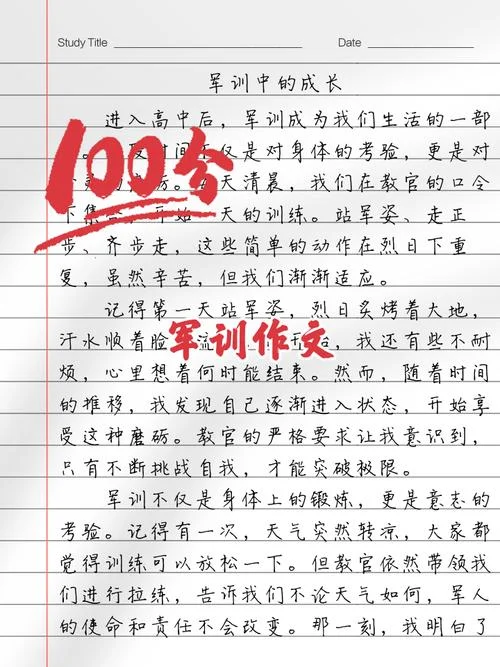 Study Title
Date
军训中的成长
进入高中后，军训成为我们生活的一部
时间不仅是对身体的考验，更是对
天清晨，我们在教官的口令
下集 开始 天的训练。站军姿、走正
步、齐步走，这些简单的动作在烈日下重
复，虽然辛苦，但我们渐渐适应。
100分
记得第一天站军姿，烈日炙烤着大地，
汗水顺着脸 流 我还有些不耐
军训作文
烦，心里想着何时能结束。然而，随着时间
的推移，我发现自己逐渐进入状态，开始享
受这种磨砺。教官的严格要求让我意识到，
只有不断挑战自我，才能突破极限。
军训不仅是身体上的锻炼，更是意志的
考验。记得有一次，天气突然转凉，大家都
觉得训练可以放松一下。但教官依然带领我
们进行拉练，告诉我们不论天气如何，军人
的使命和责任不会改变。那一刻，我明白了